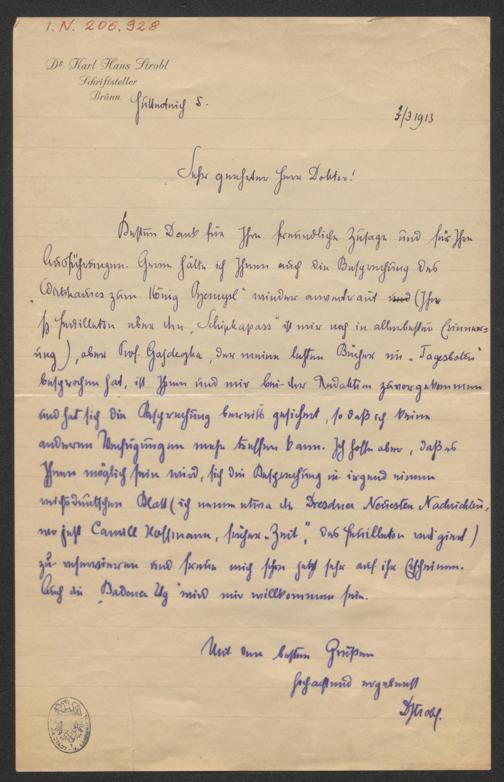 I. N. 206.928
Dr. Karl Hans Strobl
Schriftsteller
Brünn.
Hutterteich 5.
3/3 1913
Sehr geehrter Herr Doktor!
Besten Dank für Ihre freundliche Zusage und für Ihre
Ausführungen. Gerne hätte ich Ihnen auch die Besprechung des
„Wirtshauses zum König Przemysl" wieder anvertraut und (Ihr
Feuilleton über den „Schipkapass" ist mir noch in allerbester Erinner-
ung), aber Prof. Gajdeczka, der meine letzten Bücher im „Tagesboten"
besprochen hat, ist Ihnen und mir bei der Redaktion zuvorgekommen
und hat sich die Besprechung bereits gesichert, so daß ich keine
anderen Verfügungen mehr treffen kann. Ich hoffe aber, daß es
Ihnen möglich sein wird, sich die Besprechung in irgend einem
reichsdeutschen Blatt (ich nenne etwa die Dresdner Neuesten Nachrichten,
wo jetzt Camill Hoffmann, früher „Zeit", das Feuilleton redigiert)
zu reservieren und freue mich schon jetzt sehr auf ihr Erscheinen.
Auch die „Badener Ztg" wird mir willkommen sein.
Mit den besten Grüßen
hochachtend ergebenst
DrStrobl.